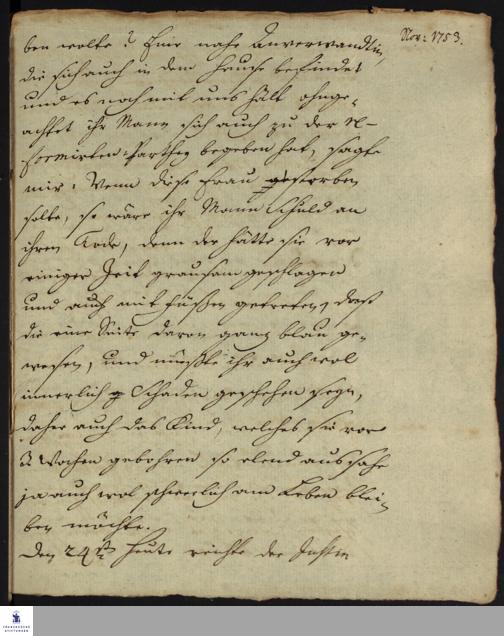 Nov: 1753.
ben wolte? Eine nahe Anverwandtin,
die sich auch in dem Hause befindet
und es noch mit uns hält ohnge-
achtet ihr Mann sich auch zu der R-
formirten Parthey begeben hat, sagte
mir: Wenn diese Frau gestorben
solte, so wäre ihr Mann Schuld an
ihren Tode, denn der hätte sie vor
einiger Zeit grausam geschlagen
und auch mit Füßen getreten, daß
die eine Seite davon gantz blau ge-
wesen, und müßte ihr auch wol
innerlich Schaden geschehen seyn,
daher auch das Kind, welches sie vor
3 Wochen gebohren so elend aussähe
ja auch wol schwerlich am Leben blei-
ben möchte.
Den 24ten Heute reichte der Justin
FRANCKESCHE
STIFTUNGEN